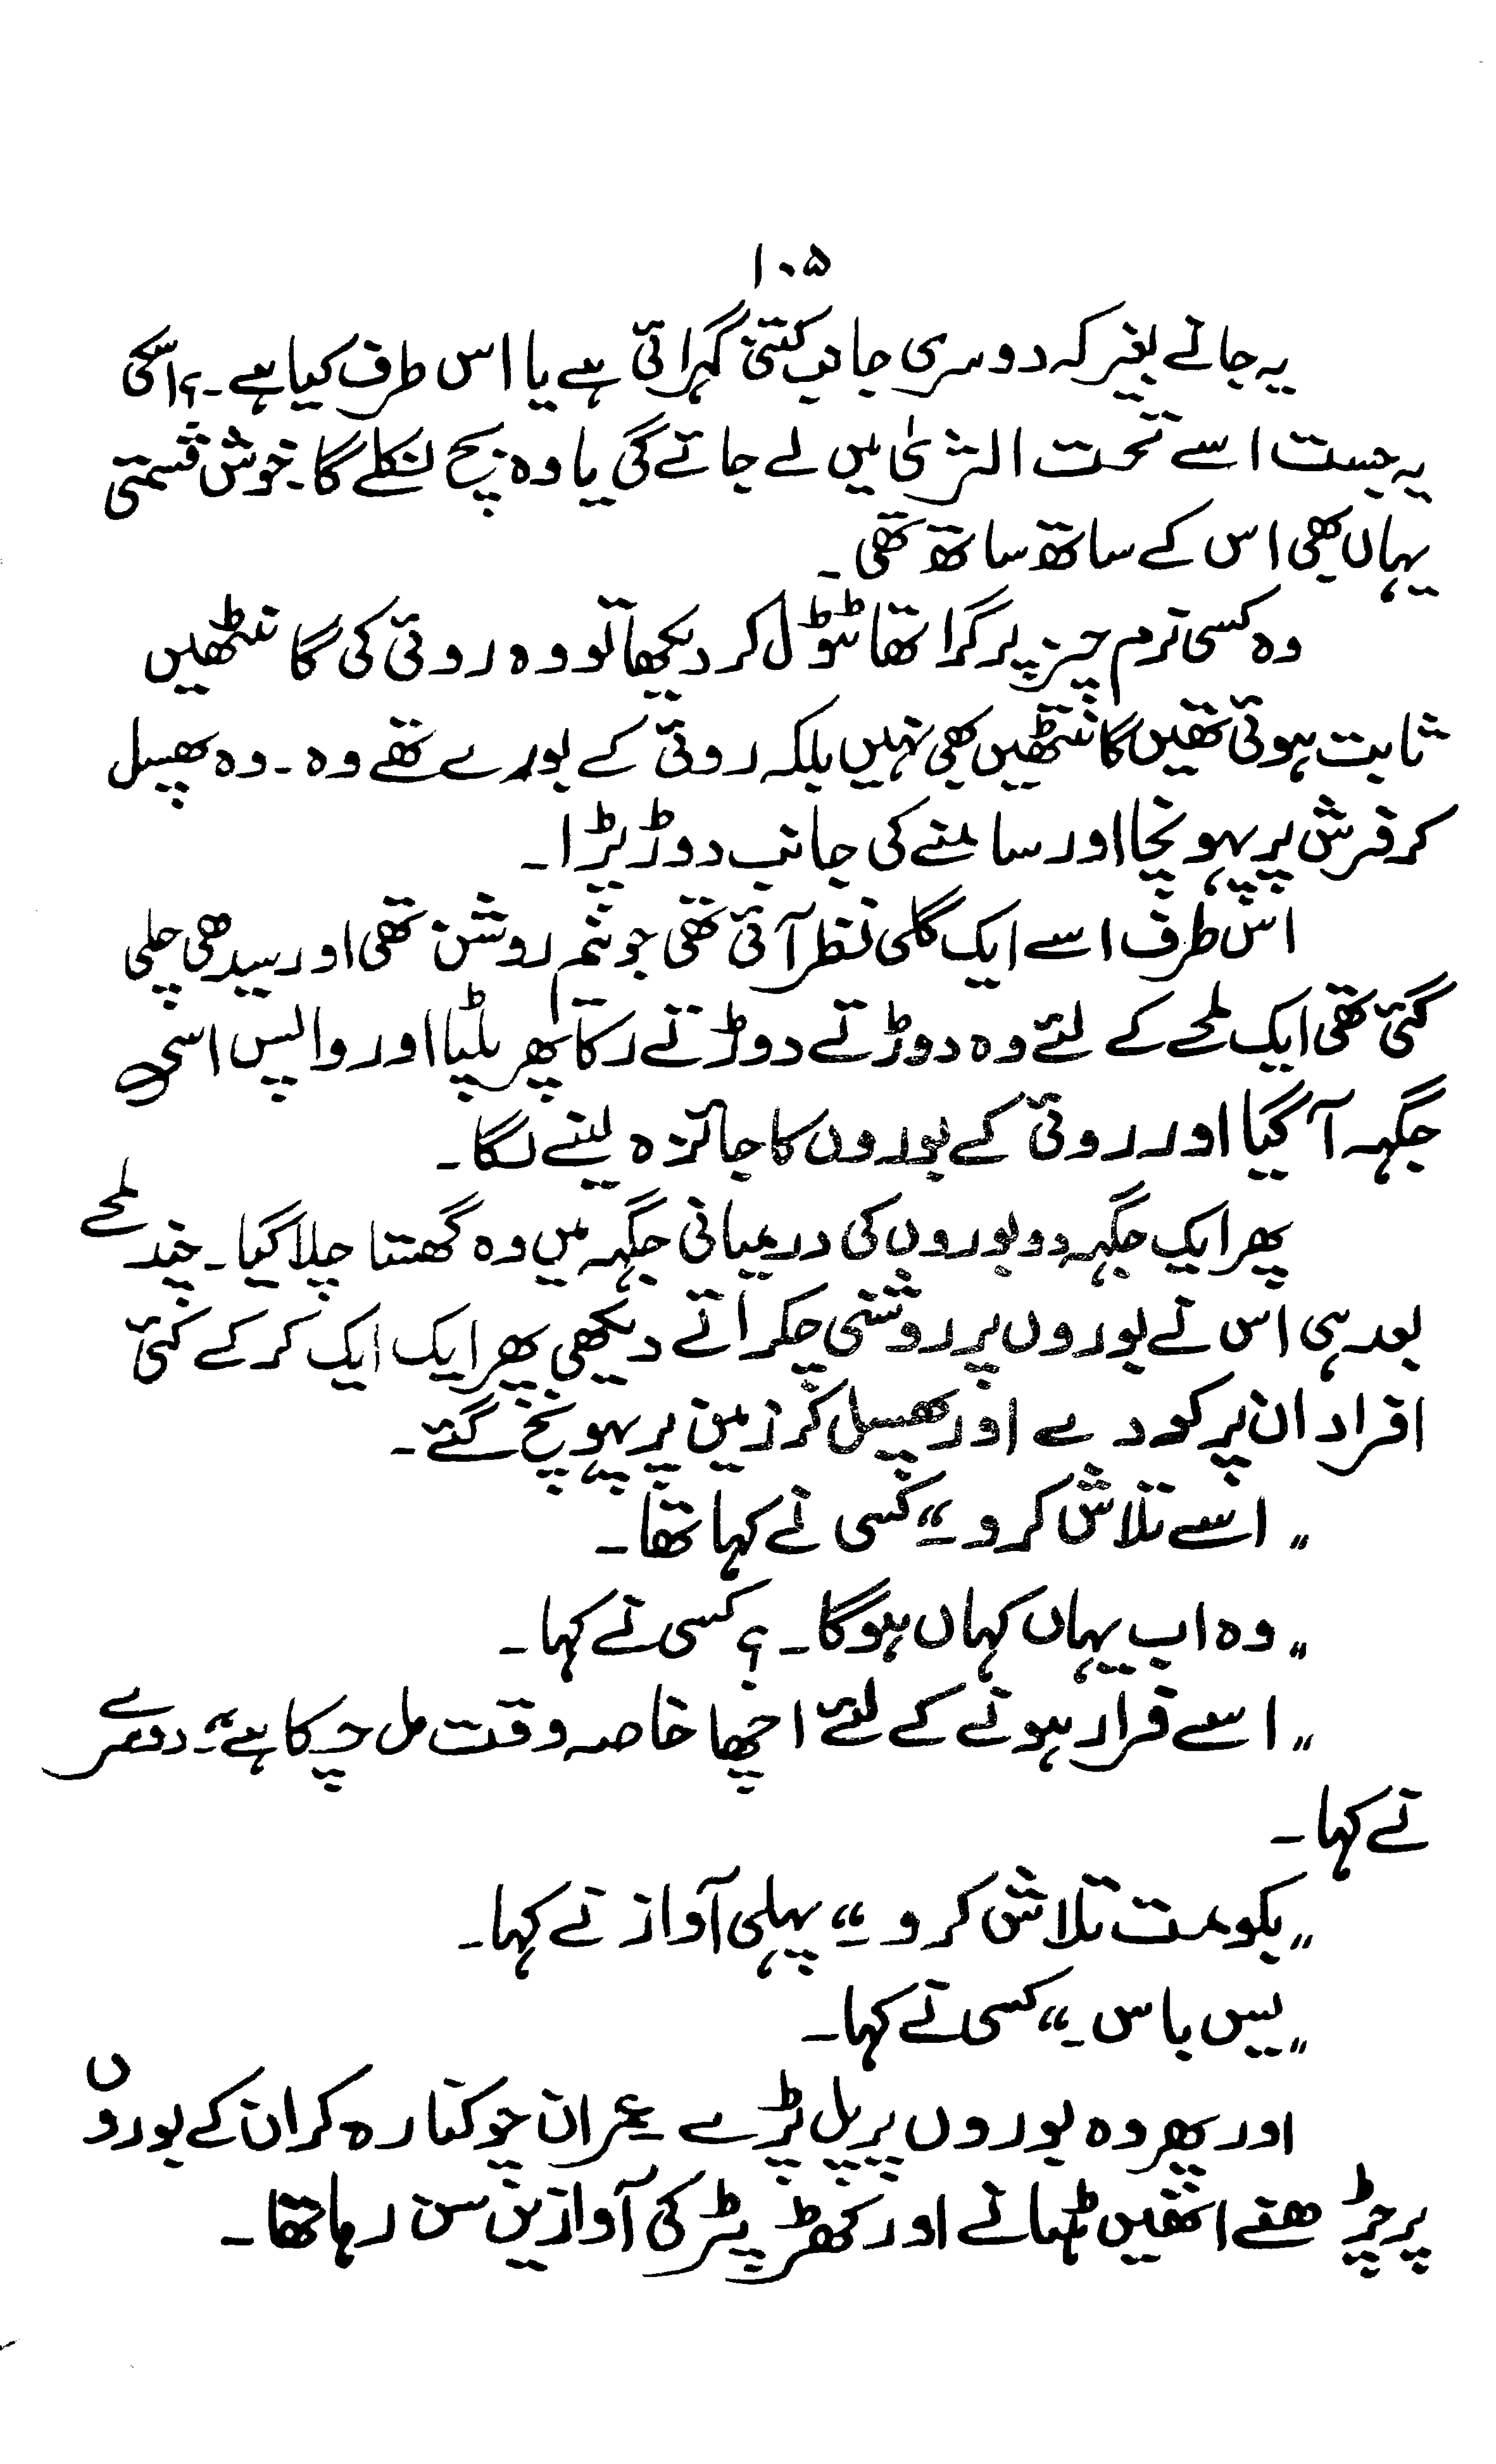 ۱۰۵
یہ جانے بغیر کہ دوسری جانب کتنی گہرائی ہے یا اس طرف کیا ہے۔؟ اسکی
یہ جست اسے تحت الثریٰ میں لے جائے گی یا وہ بچ نکلے گا۔ خوش قسمتی
یہاں بھی اس کے ساتھ ساتھ تھی۔
وہ کسی نرم چیز پر گرا تھا ٹٹول کر دیکھا تو وہ روئی کی گانٹھیں
ثابت ہوئی تھیں گانٹھیں بھی نہیں بلکہ روئی کے بورے تھے وہ۔ وہ پھسل
کر فرش پر پہونچا اور سامنے کی جانب دوڑ پڑا۔
اس طرف اسے ایک گلی نظر آئی تھی جو نیم روشن تھی اور سیدھی چلی
گئی تھی ایک لمحے کے لئے وہ دوڑتے دوڑتے رکا پھر پلٹا اور واپس اسی
جگہہ آگیا اور روئی کے بوروں کا جائزہ لینے لگا۔
پھر ایک جگہہ دو بوروں کی درمیانی جگہہ میں وہ گھستا چلا گیا۔ چند لمحے
بعد ہی اس نے بوروں پر روشنی چکراتے دیکھی پھر ایک ایک کر کے کئی
افراد ان پر کودے اور پھسل کر زمین پر پہونچ گئے۔
"اسے تلاش کرو۔" کسی نے کہا تھا۔
"وہ اب یہاں کہاں ہوگا۔؟ کسی نے کہا۔
"اسے فرار ہونے کے لئے اچھا خاصہ وقت مل چکا ہے۔" دوسرے
نے کہا۔
"بکو مت تلاش کرو۔" پہلی آواز نے کہا۔
"یس باس۔" کسی نے کہا۔
اور پھر وہ بوروں پر پل پڑے عمران چوکنا رہ کر ان کے بوروں
پر چڑھنے انھیں ہٹانے اور کھڑپڑ کی آوازیں سن رہا تھا۔